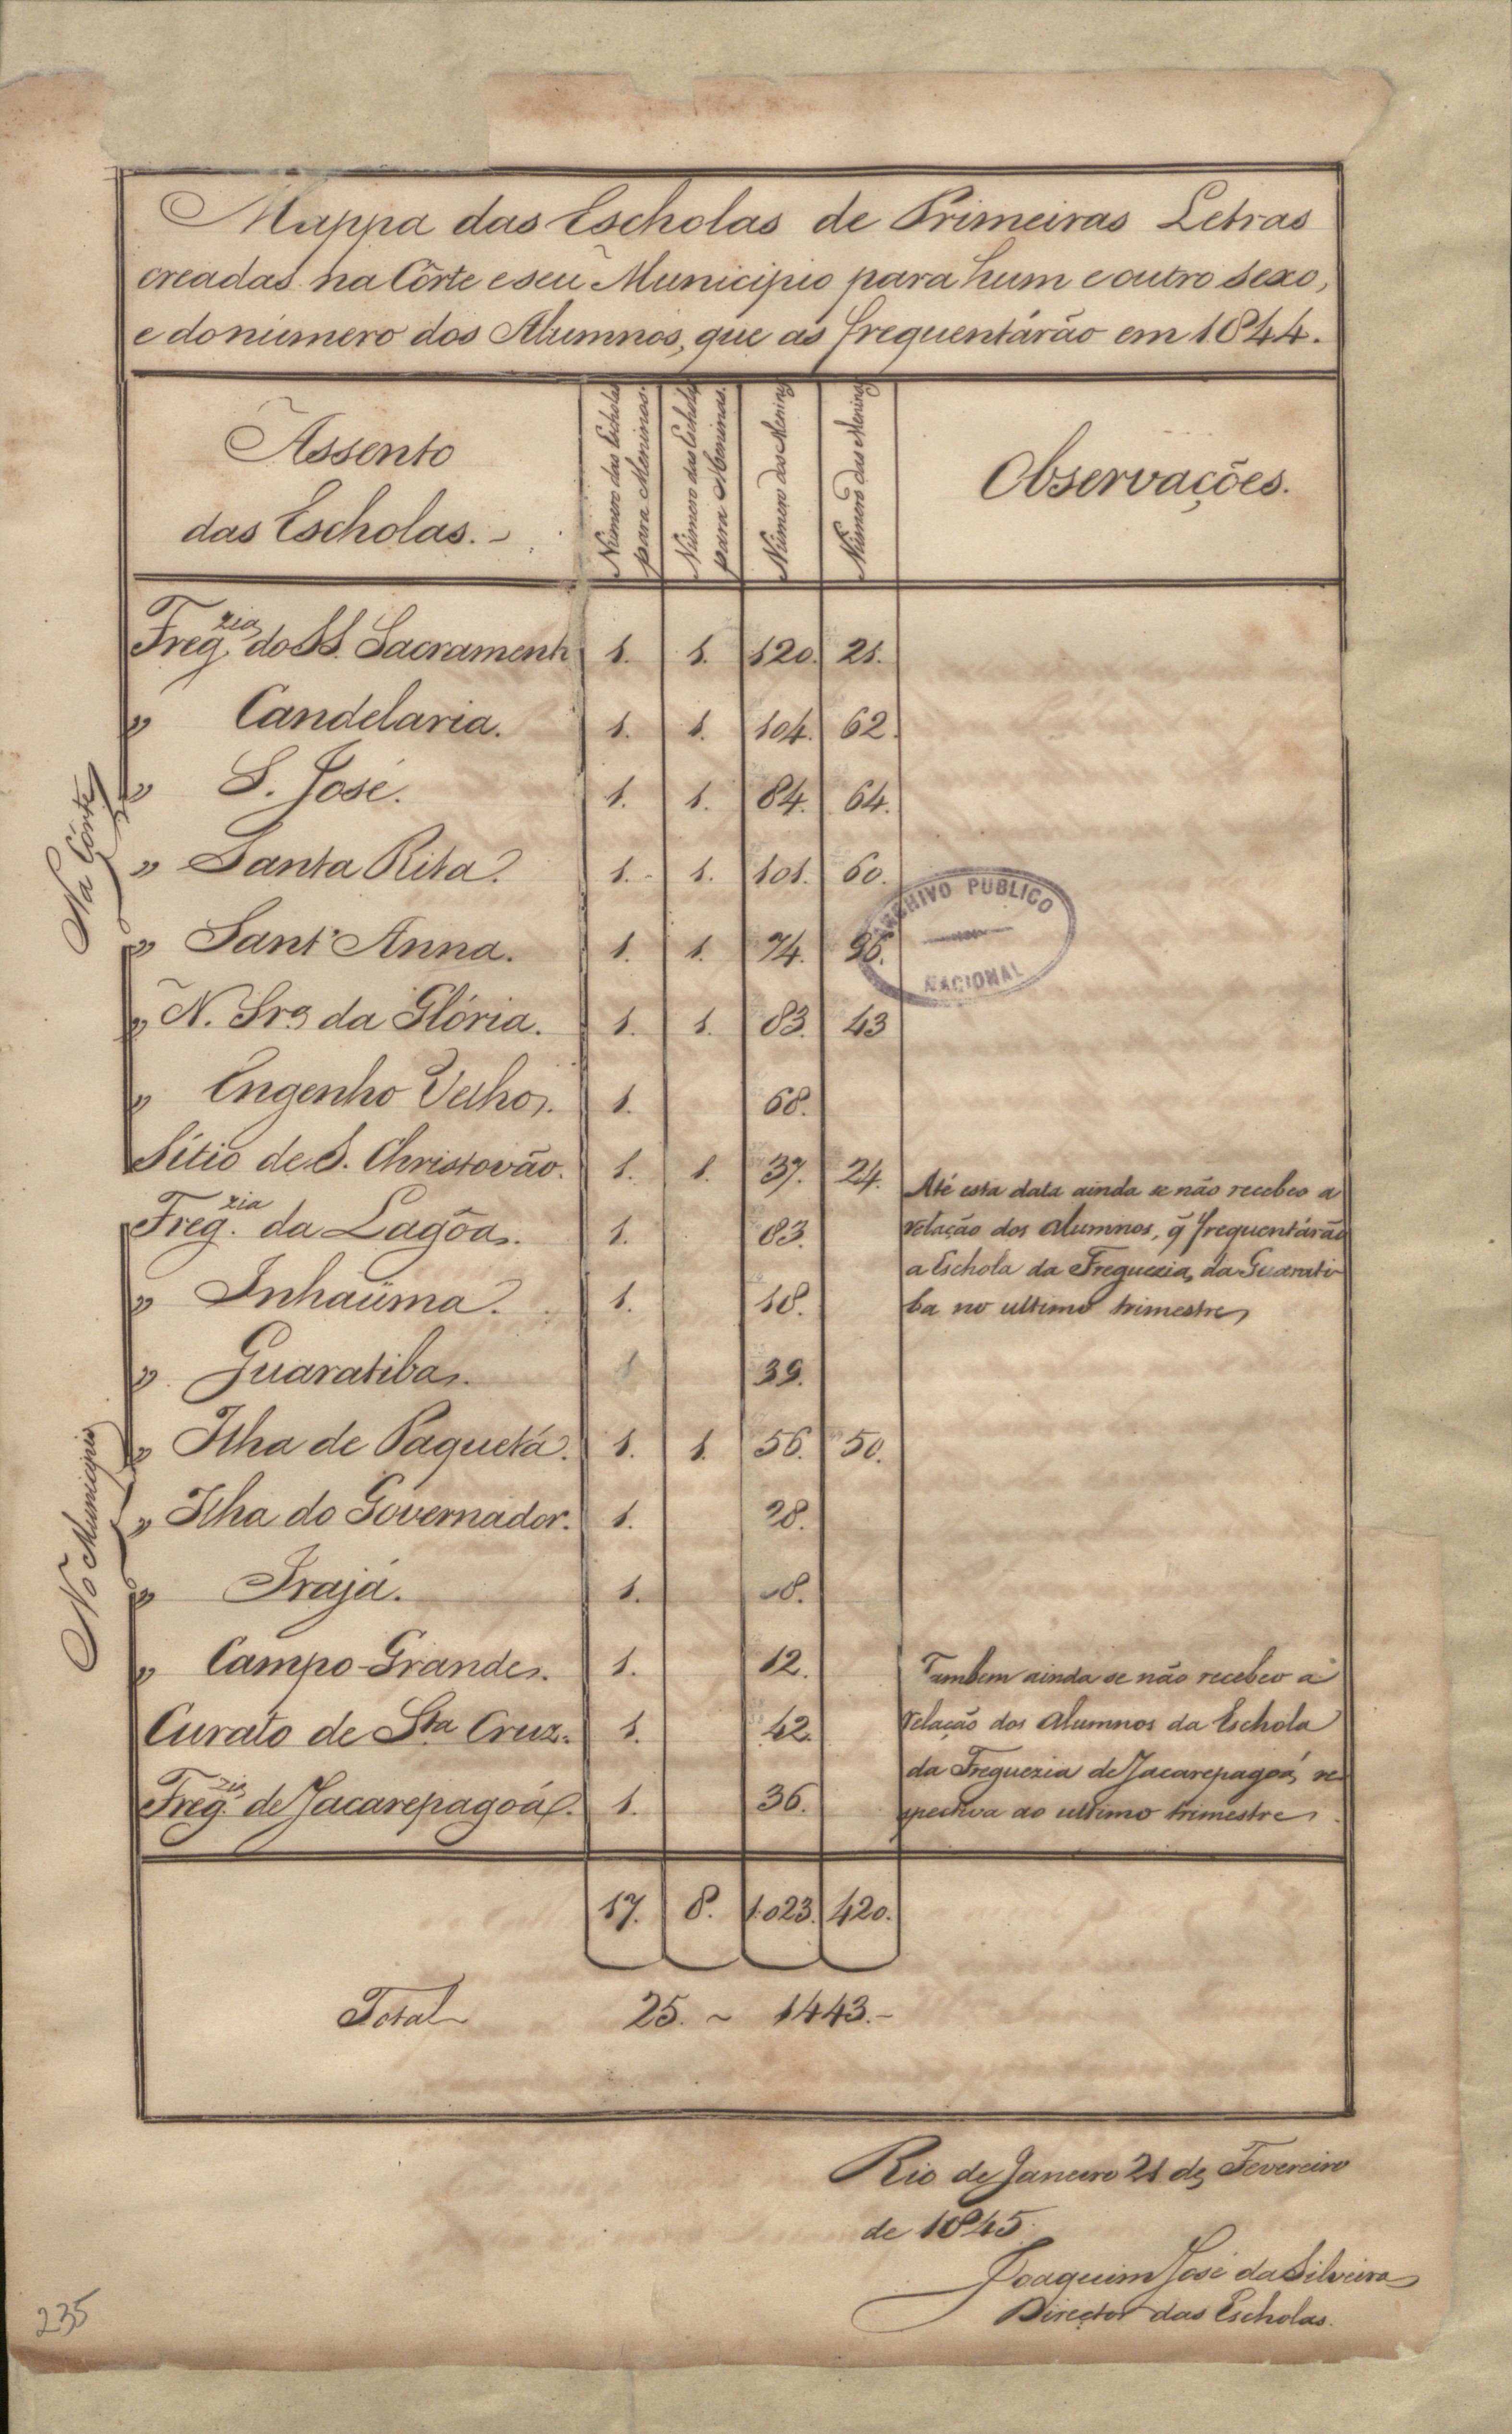 Mappa das Escholas de Primeiras Letras
creadas na Côrte e seu Municipio para hum e outro sexo,
e do número dos Alumnos, que as frequentárão em 1844.
Assento
das Escholas.
Número das Escholas
para Meninos.
Número das Escholas
para Meninas.
Número dos Meninos
Número das Meninas
Observações.
Na Côrte
Freg.zia do SS. Sacramento 1. 1. 120. 21.
" Candelaria. 1. 1. 104. 62.
" S. José. 1. 1. 84. 64.
" Santa Rita. 1. 1. 101. 60.
" Sant'Anna. 1. 1. 74. 96.
" N. Sra da Glória. 1. 1. 83. 43
" Engenho Velho. 1. 68.
Sítio de S. Christovão. 1. 1. 37. 24.
No Municipio
Freg.zia da Lagôa. 1. 83.
" Inhaúma. 1. 18.
" Guaratiba. 1 39.
" Ilha de Paquetá. 1. 1. 56. 50.
" Ilha do Governador. 1. 28.
" Irajá. 1. 38.
" Campo-Grande. 1. 12.
Curato de Sta Cruz. 1. 42.
Freg.zia de Jacarepagoá. 1. 36.
Até esta data ainda se não recebeo a
relação dos Alumnos, q̃ frequentárão
a Eschola da Freguezia da Guarati-
ba no ultimo trimestre
Tambem ainda se não recebeo a
relação dos Alumnos da Eschola
da Freguezia de Jacarepagoá, res-
pectiva ao ultimo trimestre.
ARCHIVO PUBLICO
NACIONAL
17. 8. 1.023. 420.
Total 25. ~ 1443.-
Rio de Janeiro 21 de Fevereiro
de 1845.
Joaquim José da Silveira
Director das Escholas.
235